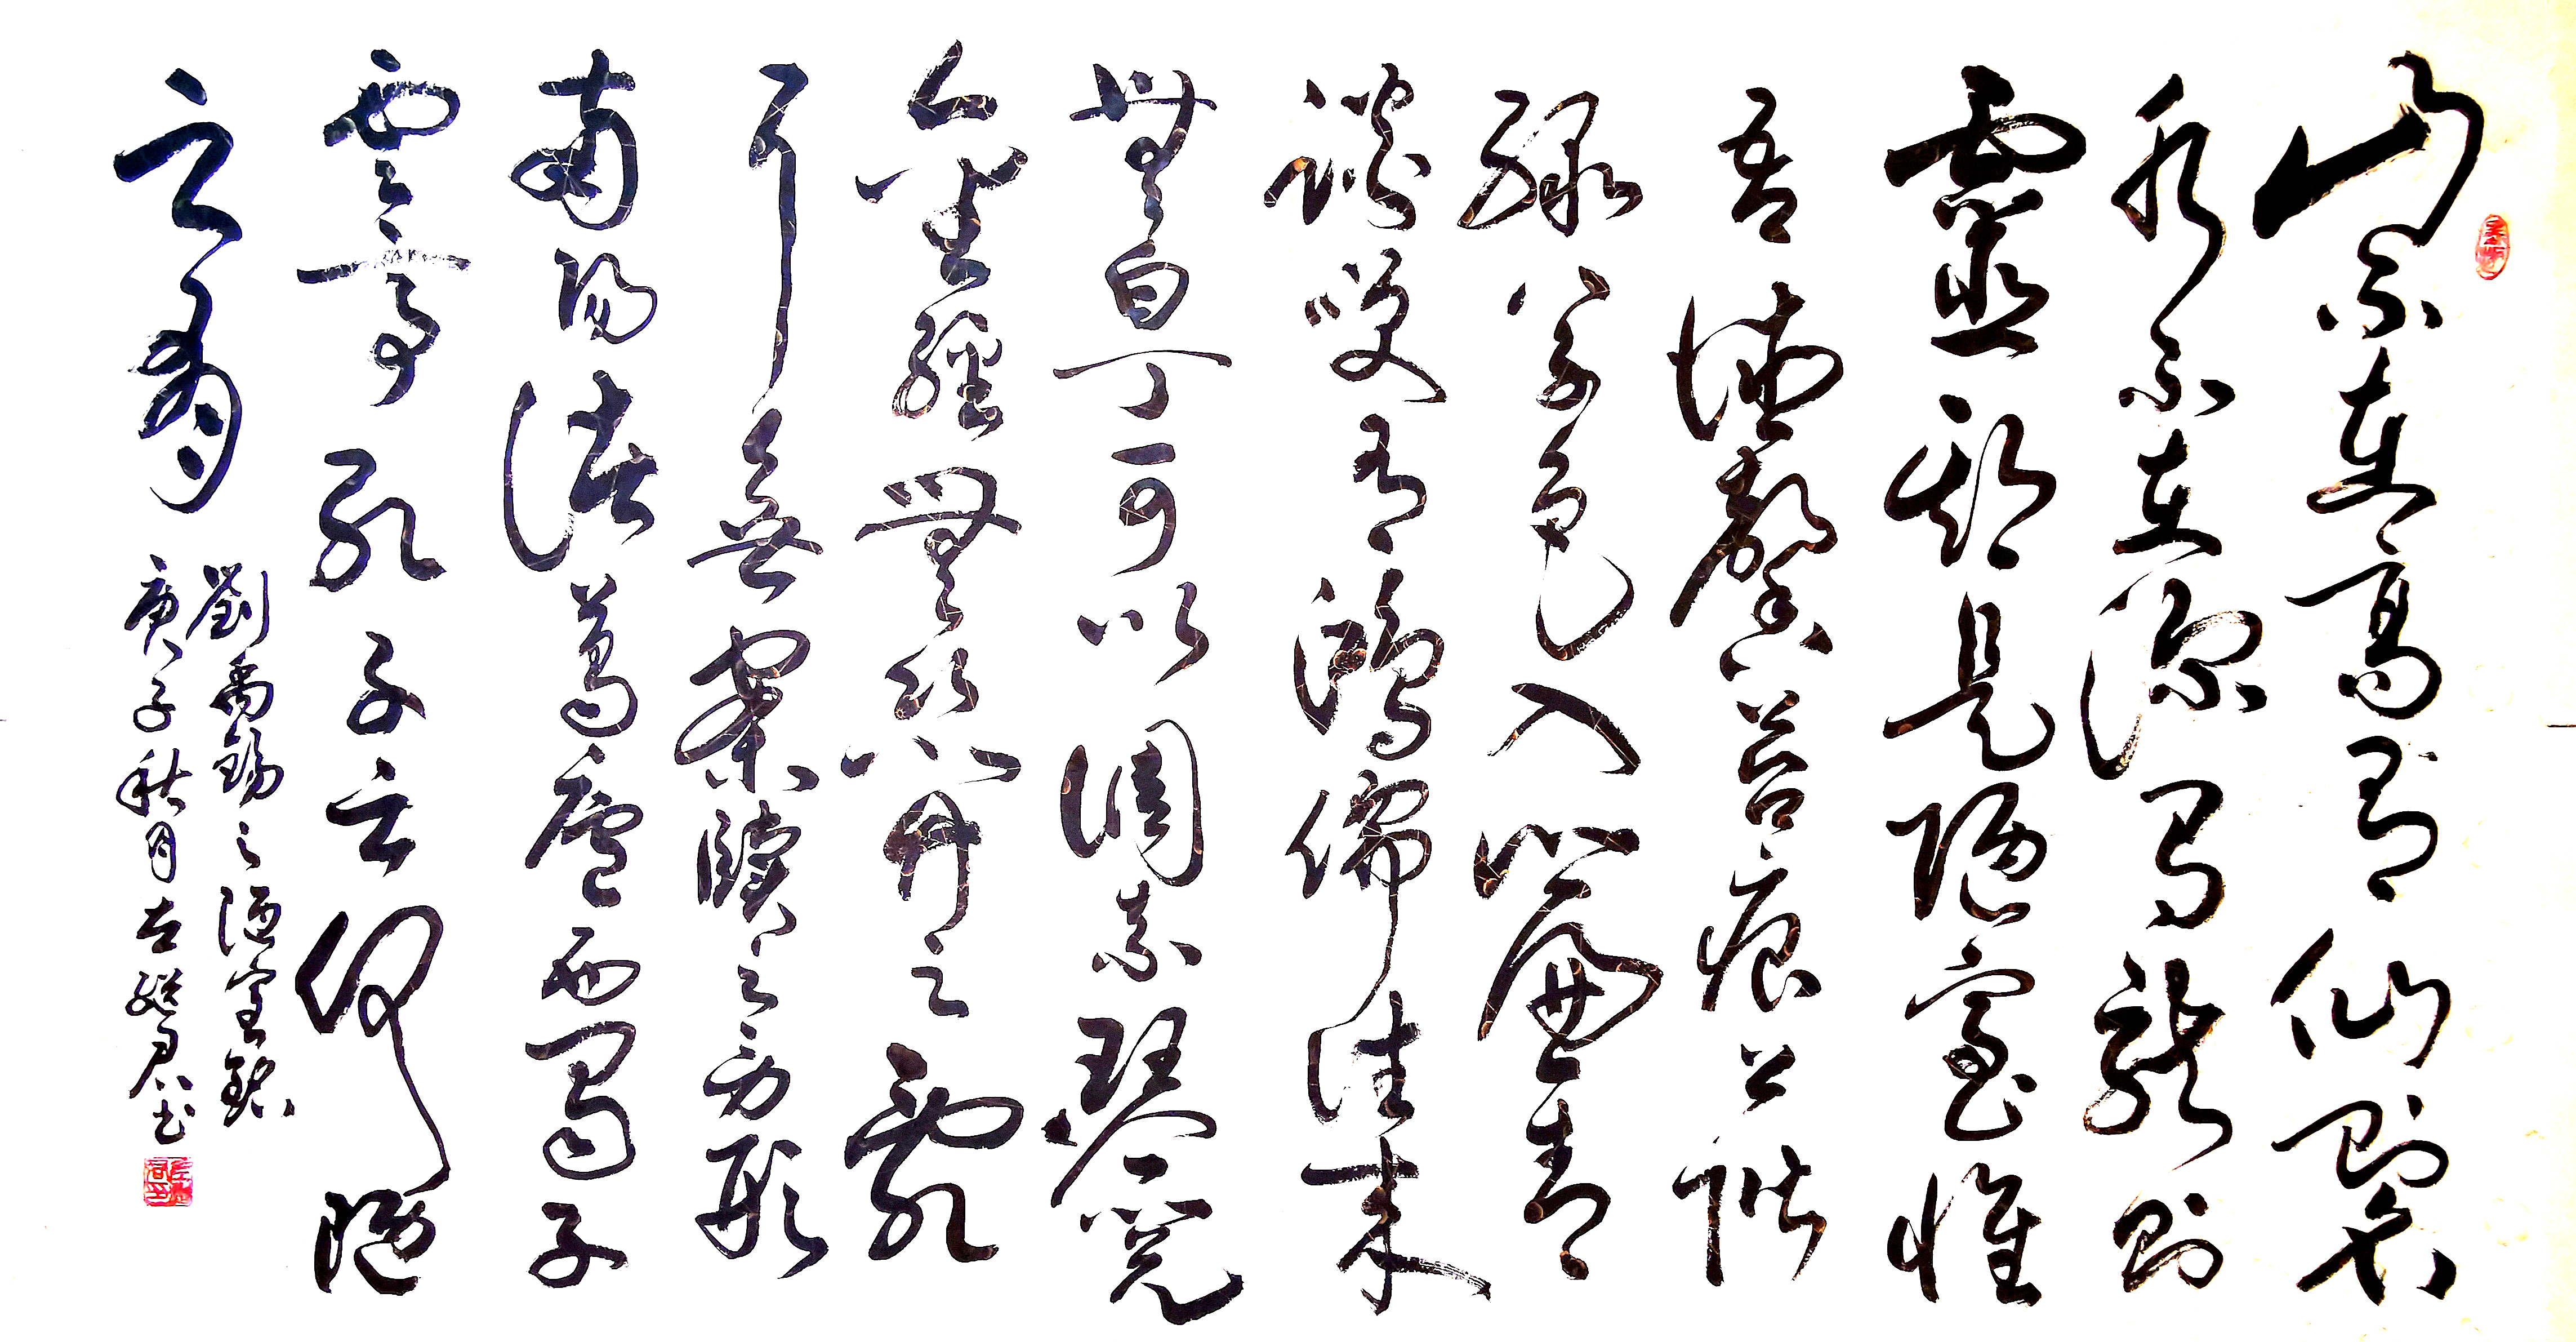 山不在高有仙則名
水不在深有龍則
靈斯是陋室惟
吾德馨苔痕上階
綠草色入簾青
談笑有鴻儒往来
無白丁可以調素琴閱
金經無絲竹之亂
耳無案牘之勞形
南陽諸葛廬西蜀子
雲亭孔子云何陋
之有
劉禹錫之陋室銘
庚子秋月左君书